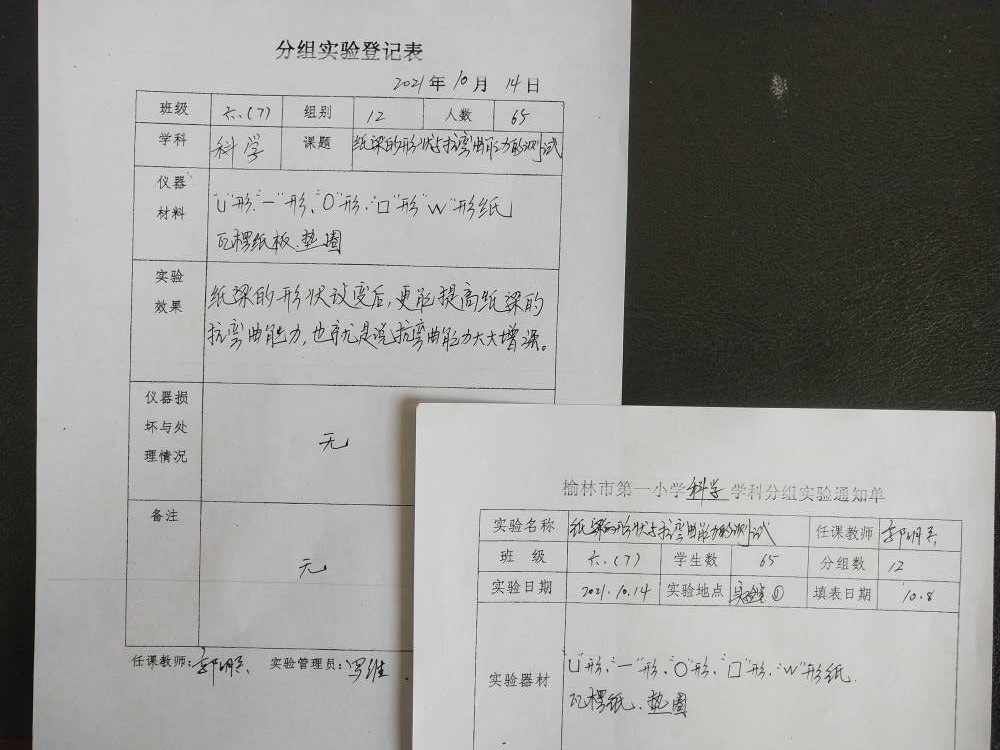 分组实验登记表
2021年10月14日
班级 六.(7) 组别 12 人数 65
学科 科学 课题 纸梁的形状与抗弯曲能力的测试
仪器材料 "U"形."一"形、"O"形."口"形"W"形纸
瓦楞纸板.垫圈
实验效果 纸梁的形状改变后,更能提高纸梁的
抗弯曲能力,也就是说抗弯曲能力大大增强。
仪器损坏与处理情况 无
备注 无
任课教师: 实验管理员:罗维
榆林市第一小学科学学科分组实验通知单
实验名称 纸梁的形状与抗弯曲能力的测试 任课教师
班 级 六.(7) 学生数 65 分组数 12
实验日期 2021.10.14 实验地点 实验室① 填表日期 10.8
实验器材 "U"形."一"形."O"形."口"形."W"形纸.
瓦楞纸.垫圈